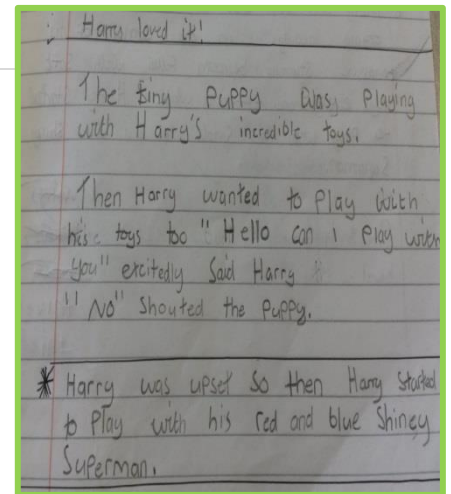 Harry loved it!
The tiny puppy was playing
with Harry's incredible toys.
Then Harry wanted to Play with
his toys too "Hello can i Play with
you" excitedly Said Harry
"No" Shouted the Puppy.
* Harry was upset So then Harry started
to Play with his red and blue Shiney
Superman.